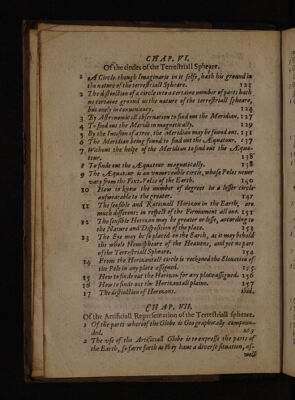 CHAP. VI.
Of the circles of the Terrestriall Spheare.
1 A Circle though Imaginarie in it selfe, hath his ground in
the nature of the terrestriall Spheare. 121
2 The distinction of a circle into a certaine number of parts hath
no certaine ground in the nature of the terrestriall spheare,
but onely in conveniency. 124
3 By Astronomicall observation to find out the Meridian. 127
4 To find out the Meridian magnetically. 129
5 By the Incision of a tree, the Meridian may be found out. 131
6 The Meridian being found to find out the Æquatour. 137
7 Without the helpe of the Meridian to find out the Æqua-
tour. 138
8 To finde out the Æquatour magnetically. 138
9 The Æquatour is an unmoveable circle, whose Poles never
vary from the Fixt Poles of the Earth. 140
10 How to know the number of degrees to a lesser circle
unsuerable to the greater. 147
11 The sensible and Rationall Horizon in the Earth, are
much different: in respect of the Firmament all one. 151
12 The sensible Horizon may be greater or lesse, according to
the Nature and Disposition of the place. 153
13 The Eye may be so placed on the Earth, as it may behold
the whole Hemispheare of the Heavens, and yet no part
of the Terrestriall Spheare. 154
14 From the Horizontall circle is reckoned the Elevation of
the Pole in any place assigned. 155
15 How to finde out the Horizon for any place assigned. 156
16 How to finde out the Horizontall plaine. 157
17 The distinction of Horizons. ibid.
CHAP. VII.
Of the Artificiall Representation of the Terrestriall spheare.
1 Of the parts whereof the Globe is Geographically compoun-
ded.
2 The vse of the Artificiall Globe is to expresse the parts of
the Earth, so farre forth as they haue a diverse situation, as
well